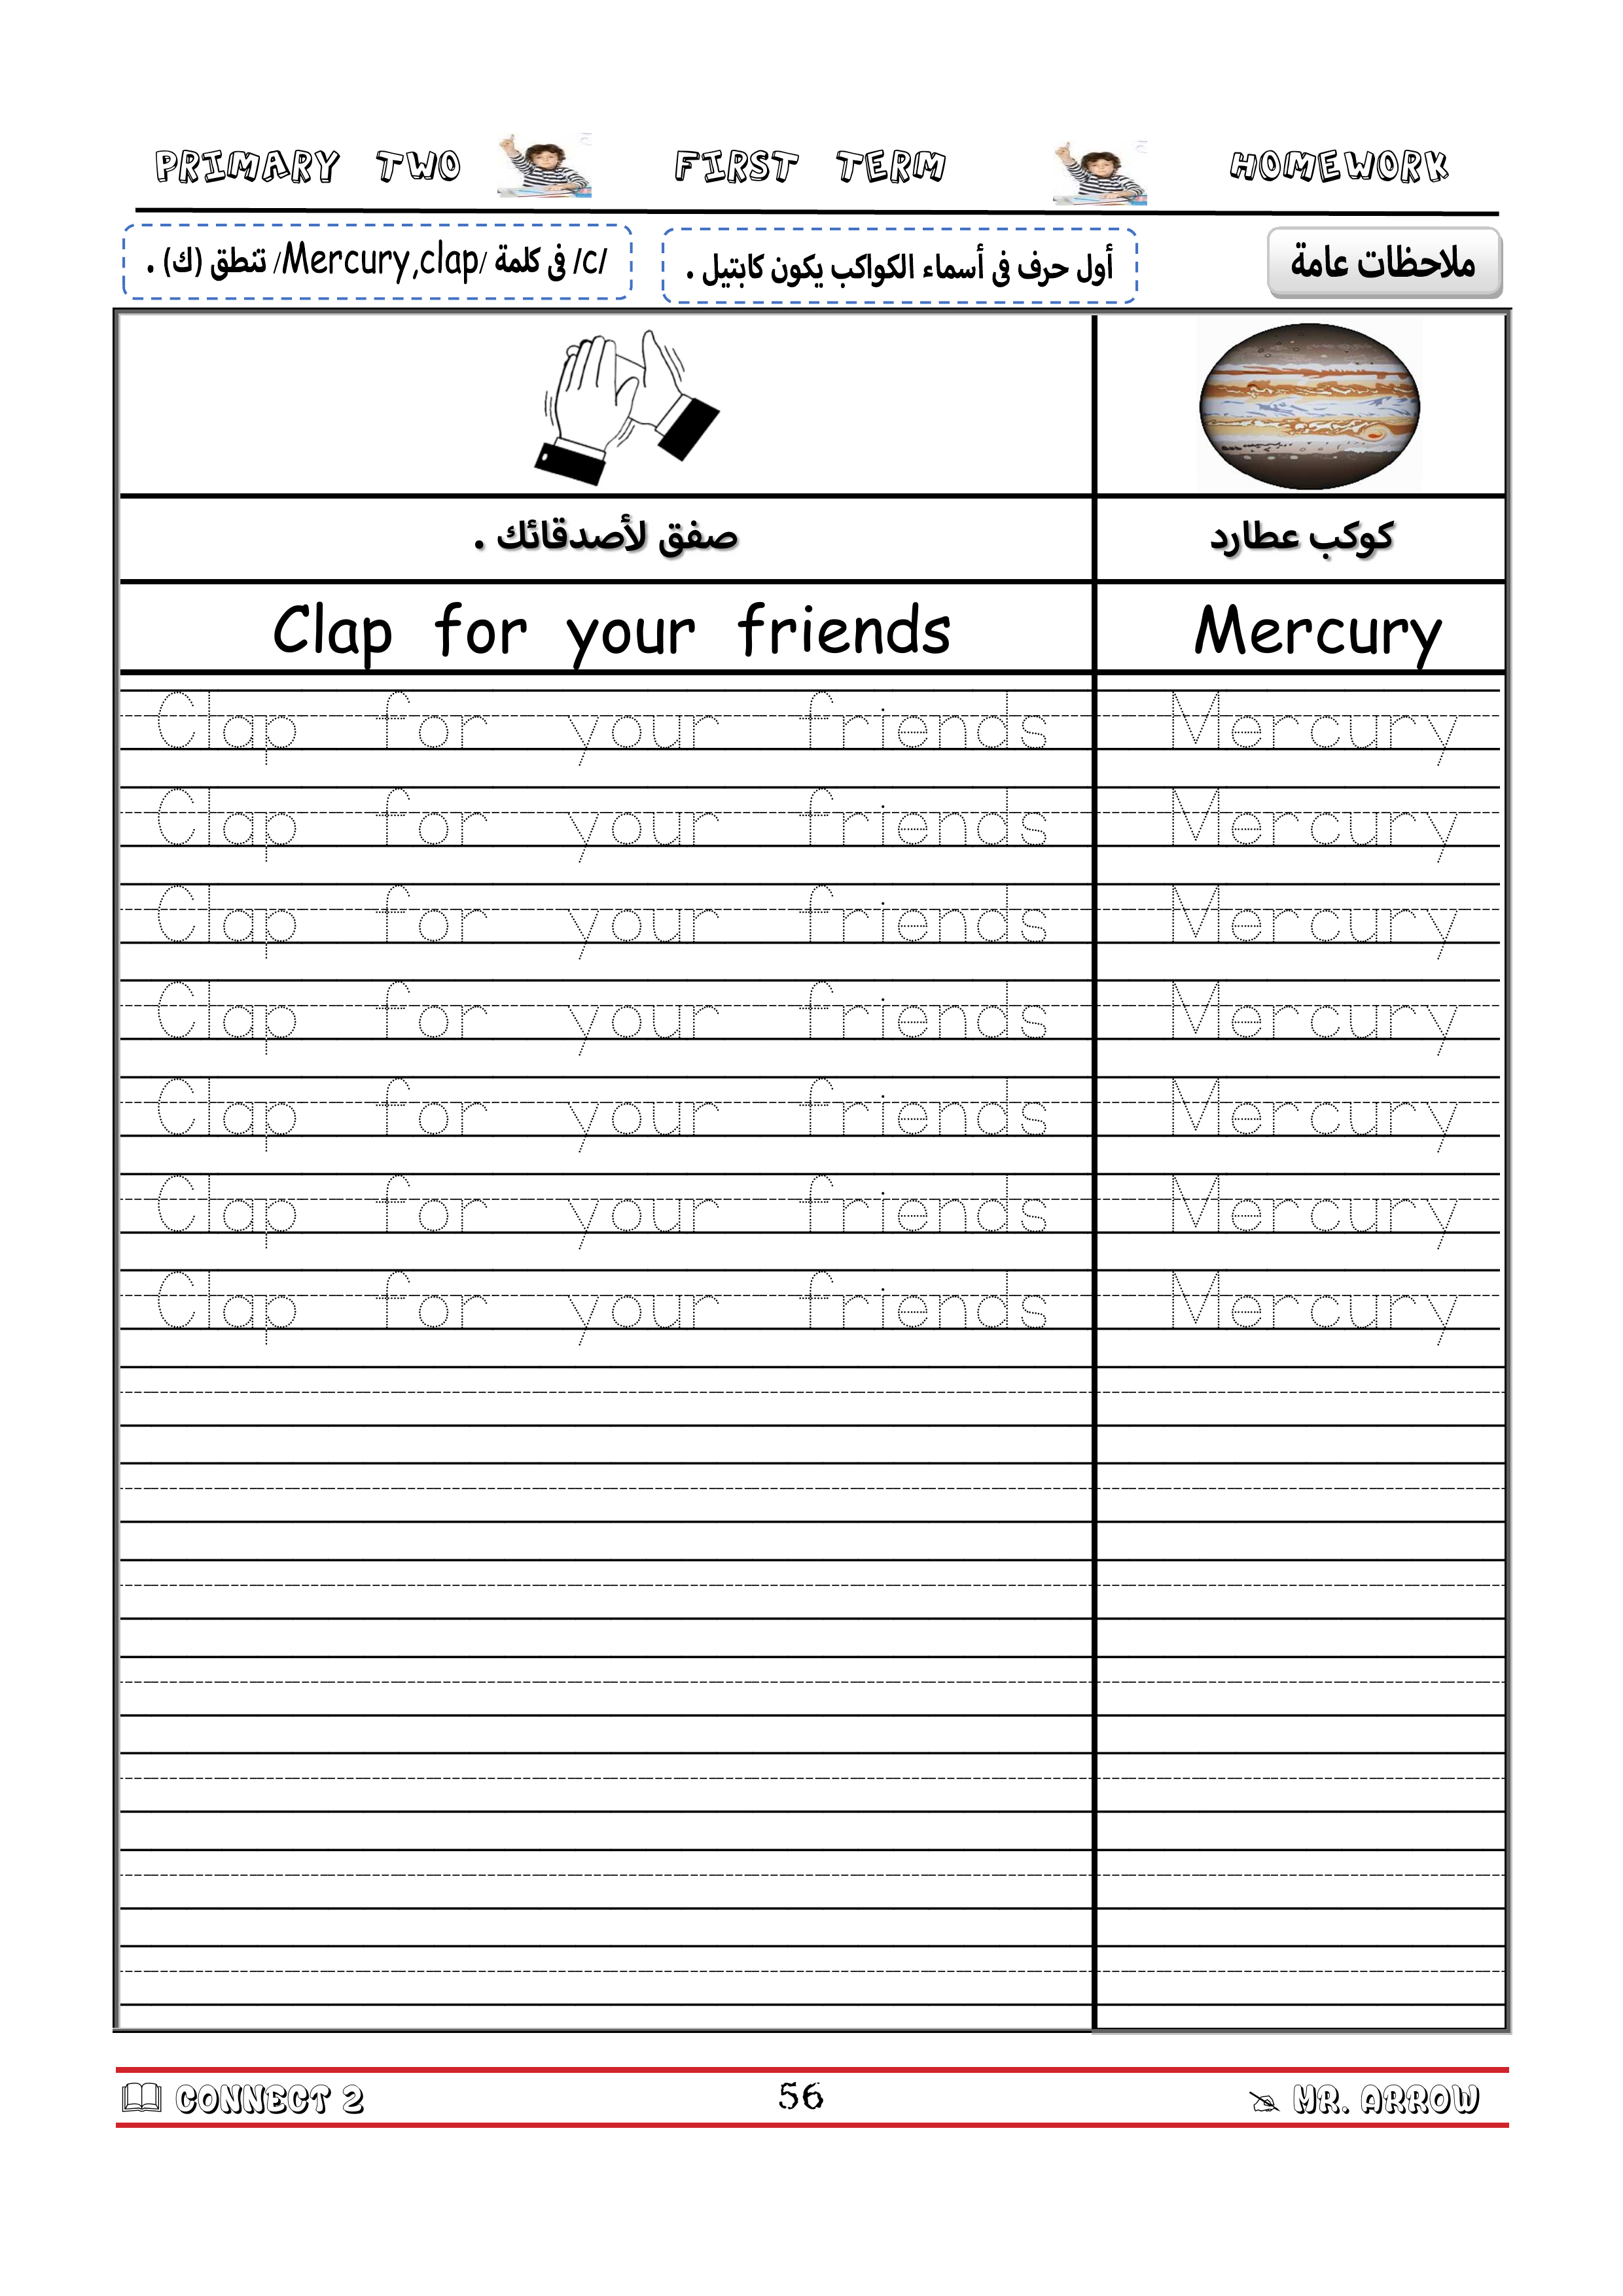 PRIMARY TWO FIRST TERM HOMEWORK
ملاحظات عامة
أول حرف فى أسماء الكواكب يكون كابتيل .
/c/ فى كلمة /Mercury,clap/ تنطق (ك) .
صفق لأصدقائك . كوكب عطارد
Clap for your friends Mercury
Clap for your friends Mercury
Clap for your friends Mercury
Clap for your friends Mercury
Clap for your friends Mercury
Clap for your friends Mercury
Clap for your friends Mercury
Clap for your friends Mercury
CONNECT 2 56 MR. ARROW